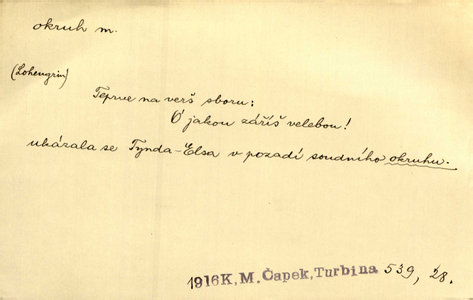 okruh m.
(Lohengrin)
Teprve na verš sboru:
Ó jakou záříš velebou!
ukázala se Tynda-Elsa v pozadí soudního okruhu.
1916 K, M. Čapek, Turbina 539, 28.